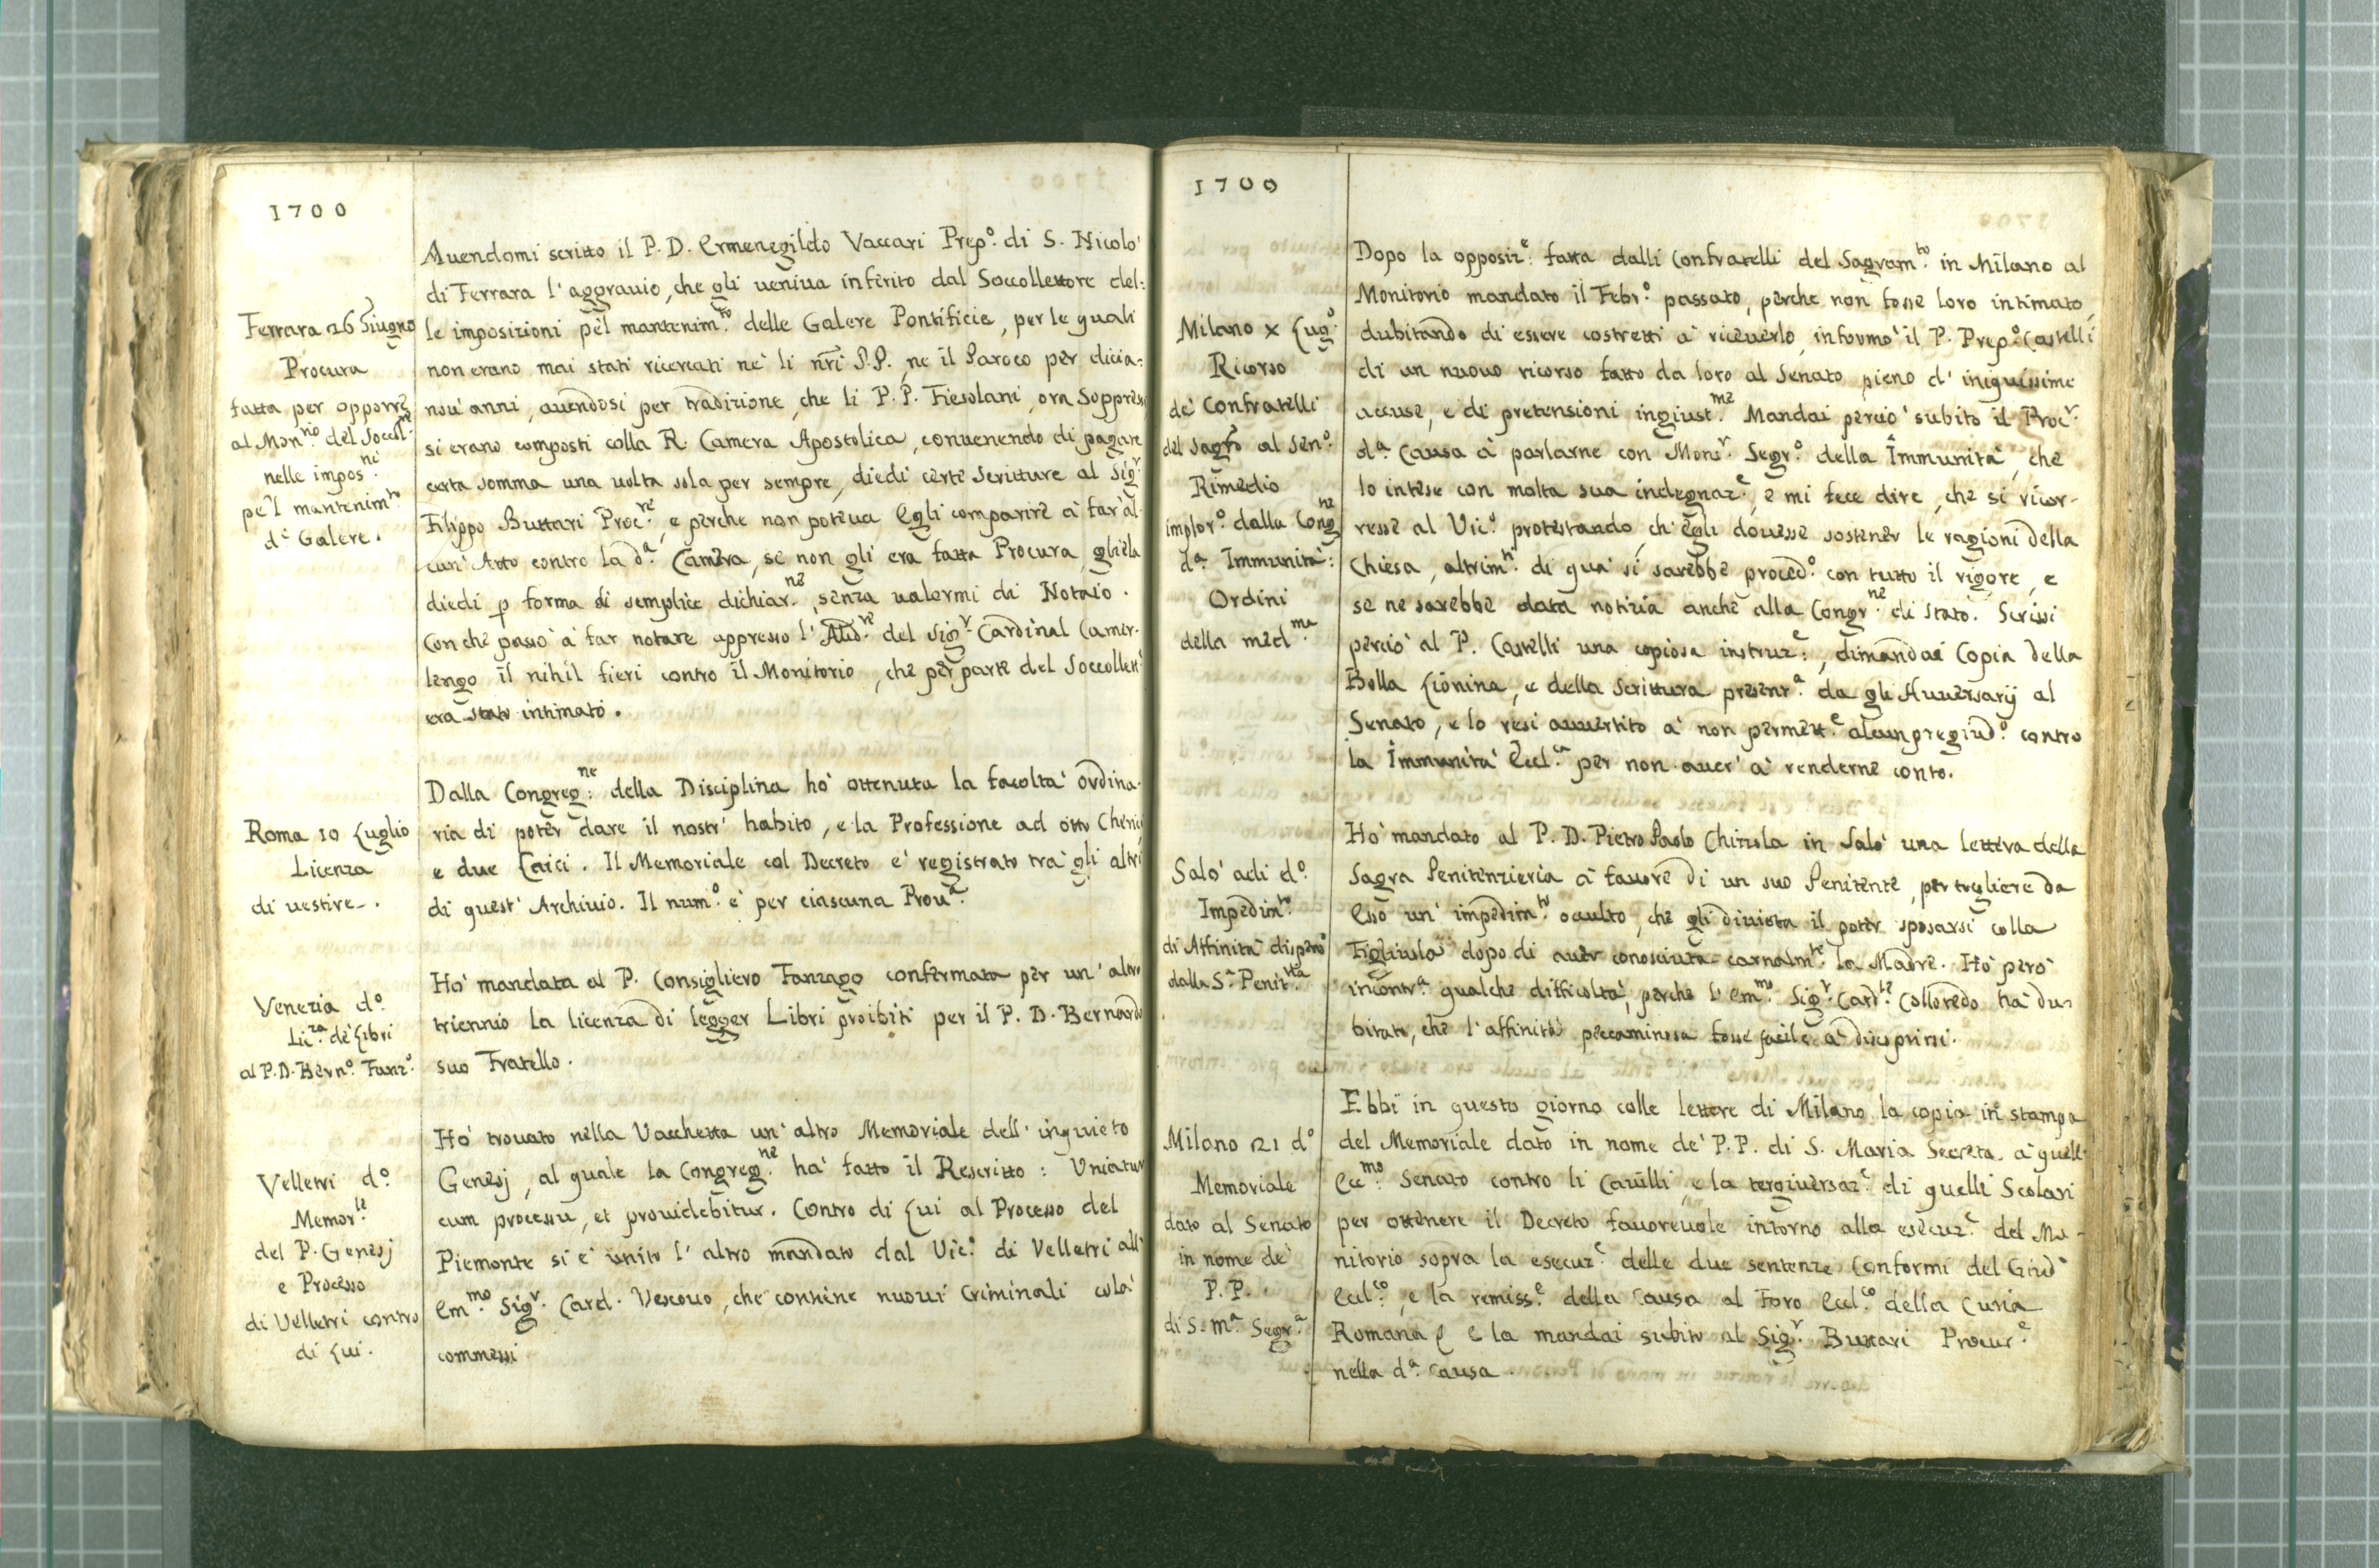 1700
Ferrara 26 Giugno
Procura
fatta per opporre
al Mon.rio del Soccol.re
nelle impos.ni
pel mantenim.to
d.e Galere.
Auendomi scritto il P. D. Ermenegildo Vaccari Prep.o di S. Nicolò
di Ferrara l'aggrauio, che gli ueniua inferito dal Soccollettore del:
le imposizioni pel mantenim.to delle Galere Pontificie, per le quali
non erano mai stati ricercati nè li nri P.P., ne il Paroco per dicia:
noù anni, auendosi per tradizione, che li P. P. Fiesolani, ora Soppressi
si erano composti colla R. Camera Apostolica, conuenendo di pagare
certa somma una uolta sola per sempre, diedi certe Scritture al Sig.r
Filippo Buttari Proc.re, e perche non poteua Egli comparire à far al:
cun' Atto contro la d.a Camera, se non gli era fatta Procura, gliela
diedi p forma di semplice dichiar.ne, senza ualermi di Notaio.
Con che passò à far notare appresso l'Aud.re del Sig.r Cardinal Camer-
lengo il nihil fieri contro il Monitorio, che per parte del Soccollett.e
era stato intimato.
Roma 10 Luglio
Licenza
di uestire.
Dalla Congreg.ne della Disciplina hò ottenuta la facoltà ordina-
ria di poter dare il nostr' habito, e la Professione ad otto Cherici
e due Laici. Il Memoriale col Decreto è registrato trà gli altri
di quest' Archiuio. Il num.o è per ciascuna Prou.a
Venezia d.o
Lic.za de' Libri
al P. D. Bern.o Fanz.o
Hò mandata al P. Consigliero Fanzago confermata per un' altro
triennio la licenza di legger Libri proibiti per il P. D. Bernardo
suo Fratello.
Velletri d.o
Memor.le
del P. Genesj
e Processo
di Velletri contro
di Lui.
Hò trouato nella Vacchetta un' altro Memoriale dell' inquieto
Genesj, al quale la Congreg.ne hà fatto il Rescritto: Uniatur
cum processu, et prouidebitur. Contro di Lui al Processo del
Piemonte si è unito l' altro mandato dal Vic.o di Velletri all'
Em.mo Sig.r Card. Vescouo, che contiene nuoui Criminali colà
commessi
1700
Milano x Lug.o
Ricorso
de' Confratelli
del Sagr.to al Sen.o
Rimedio
implor.o dalla Cong.ne
d.a Immunità:
Ordini
della med.ma
Dopo la opposiz.e fatta dalli Confratelli del Sagram.to in Milano al
Monitorio mandato il Febr.o passato, perche non fosse loro intimato,
dubitando di essere costretti à riceuerlo, informò il P. Prep.o Castelli
di un nuouo ricorso fatto da loro al Senato, pieno d' iniquissime
accuse, e di pretensioni ingiust.me Mandai perciò subito il Proc.r
d.a Causa à parlarne con Mons.r Segr.o della Immunità, che
lo intese con molta sua indegnaz.e, e mi fece dire, che si ricor-
resse al Vic.o protestando, ch' egli douesse sostener le ragioni della
Chiesa, altrim.ti di quà si sarebbe proced.o con tutto il rigore, e
se ne sarebbe data notizia anche alla Congr.ne di Stato. Scrissi
perciò al P. Castelli una copiosa instruz.e, dimandai Copia della
Bolla Lionina, e della Scrittura present.a da gli Auuersarij al
Senato, e lo resi auuertito à non permett.e alcun pregiud.o contro
la Immunità Eccl.ca per non auer' à renderne conto.
Salò adi d.o
Impedim.to
di Affinità dispens.o
dalla S.a Penit.ria
Hò mandato al P. D. Pietro Paolo Chizzola in Salò una lettera della
Sagra Penitenzieria à fauore di un suo Penitente, per togliere da
Esso un' impedim.to occulto, che gli diuieta il poter sposarsi colla
Figliuola dopo di auer conosciuta carnalm.te la Madre. Hò però
incontr.a qualche difficoltà, perche l' Em.mo Sig.r Card.le Colloredo hà du-
bitato, che l' affinità peccaminosa fosse facile à discoprirsi.
Milano 21 d.o
Memoriale
dato al Senato
in nome de'
P. P.
di S. M.a Segr.a
Ebbi in questo giorno colle lettere di Milano la copia in stampa
del Memoriale dato in nome de' P.P. di S. Maria Secreta à quell'
Ecc.mo Senato contro li Cauilli, e la tergiuersaz.e di quelli Scolari
per ottenere il Decreto fauoreuole intorno alla esecuz.e del Mo-
nitorio sopra la esecuz.e delle due sentenze Conformi del Giud.e
Eccl.co, e la remiss.e della Causa al Foro Eccl.co della Curia
Romana e la mandai subito al Sig.r Buttari Procur.e
nella d.a Causa.